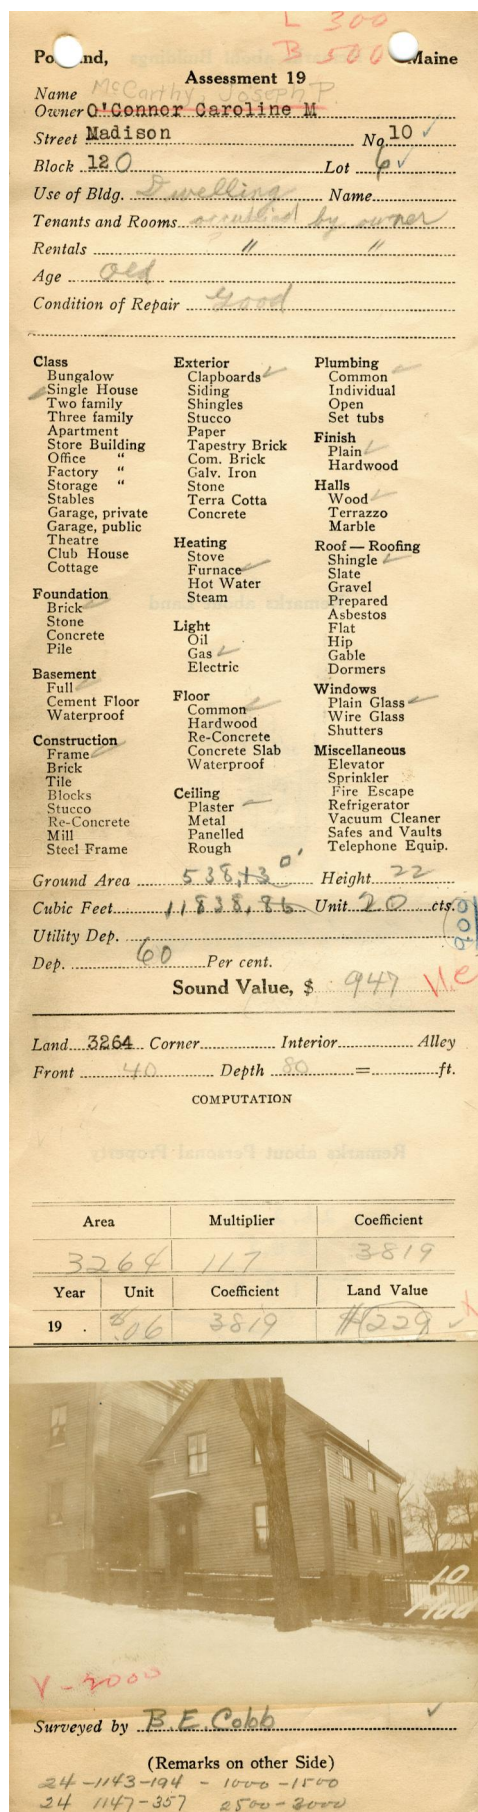 L 300
B 500
Portland, Maine
Assessment 19
Name McCarthy, Joseph P.
Owner O'Connor Caroline M
Street Madison No. 10 ✓
Block 120 Lot 6 ✓
Use of Bldg. Dwelling Name
Tenants and Rooms occupied by owner
Rentals " "
Age Old
Condition of Repair Good
Class
Bungalow
✓ Single House
Two family
Three family
Apartment
Store Building
Office "
Factory "
Storage "
Stables
Garage, private
Garage, public
Theatre
Club House
Cottage
Foundation
Brick ✓
Stone
Concrete
Pile
Basement
Full ✓
Cement Floor
Waterproof
Construction
Frame ✓
Brick
Tile
Blocks
Stucco
Re-Concrete
Mill
Steel Frame
Exterior
Clapboards ✓
Siding
Shingles
Stucco
Paper
Tapestry Brick
Com. Brick
Galv. Iron
Stone
Terra Cotta
Concrete
Heating
Stove
Furnace ✓
Hot Water
Steam
Light
Oil
Gas ✓
Electric
Floor
Common ✓
Hardwood
Re-Concrete
Concrete Slab
Waterproof
Ceiling
Plaster ✓
Metal
Panelled
Rough
Plumbing
Common ✓
Individual
Open
Set tubs
Finish
Plain ✓
Hardwood
Halls
Wood ✓
Terrazzo
Marble
Roof — Roofing
Shingle ✓
Slate
Gravel
Prepared
Asbestos
Flat
Hip
Gable
Dormers
Windows
Plain Glass ✓
Wire Glass
Shutters
Miscellaneous
Elevator
Sprinkler
Fire Escape
Refrigerator
Vacuum Cleaner
Safes and Vaults
Telephone Equip.
Ground Area 538,13 □' Height 22
Cubic Feet 11838,86 Unit 20 cts.
Utility Dep.
Dep. 60 Per cent.
Sound Value, $ 947
Land 3264 Corner Interior Alley
Front 40 Depth 80 = ft.
COMPUTATION
Area Multiplier Coefficient
3264 117 3819
Year Unit Coefficient Land Value
19 . $.06 3819 $229 ✓
10
Mad
V - 2000
Surveyed by B. E. Cobb ✓
(Remarks on other Side)
24 -1143-194 - 1000 -1500
24 1147-357 2500-3000